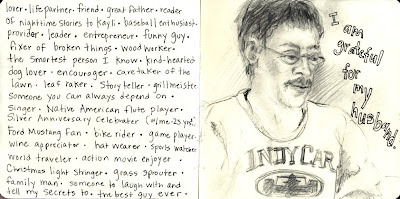 lover · life partner · friend · great father · reader
of nighttime stories to Kayli · baseball enthusiast ·
provider · leader · entrepreneur · funny guy ·
fixer of broken things · wood worker ·
the smartest person I know · kind-hearted
dog lover · encourager · caretaker of the
lawn · leaf raker · Storyteller · grillmeister
Someone you can always depend on ·
Singer · Native American flute player ·
Silver Anniversary Celebrater (w/me-25 yrs!) ·
Ford Mustang Fan · bike rider · game player
wine appreciator · hat wearer · sports watcher
world traveler · action movie enjoyer ·
Christmas light stringer · grass sprouter ·
family man · someone to laugh with and
tell my secrets to · the best guy ever ·
I am
grateful
for
my
husband.
INDY CAR